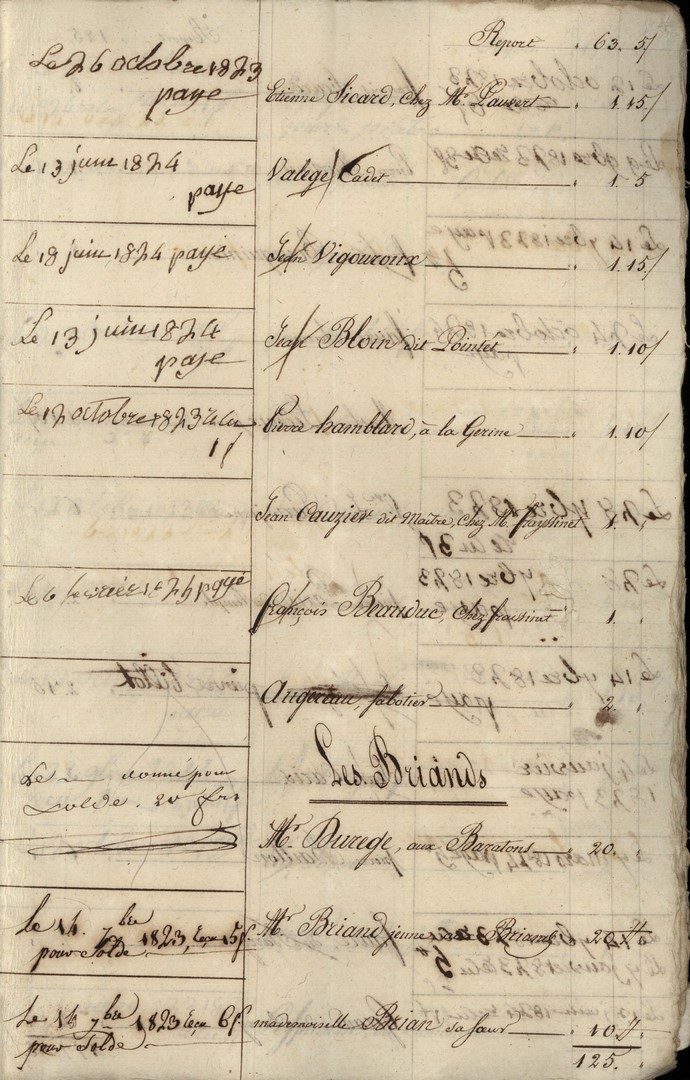 Report 63. 5/
Le 26 octobre 1823
paye
Etienne Sicard, chez Mr. Lauvert 1. 15/
Le 13 juin 1824
paye
Valege Cadet 1. 5
Le 18 juin 1824 payé
Jean Vigouroux 1. 15/
Le 13 juin 1824
paye
Jean Bloin dit Pointét 1. 10/
Le 12 octobre 1823
Pierre hamblard, à la Gerine 1. 10/
Jean Cauzier dit Maître, chez M. frayssinet 1.
Le 6 1824 payé
François Beauduc, chez fraissinet 1.
Augereau, sabotier 2.
Les Briands
Le donné pour
Solde. 20 frs
Mr. Durege, aux Baratons 20.
le 14. 7bre 1823, reçu 15 f.
pour Solde
Mr. Briand jeune Briands 20
Le 14 7bre 1823 reçu 6 f.
pour Solde
mademoiselle Brian sa sœur 10
125.